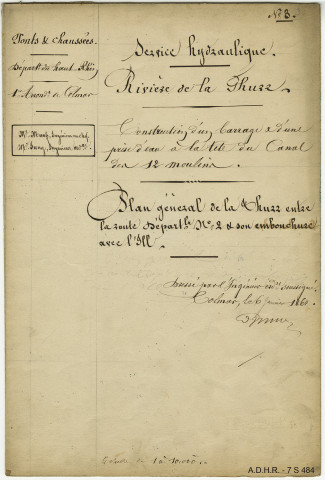 N° 3.
Ponts & chaussées.
Départt du Haut-Rhin
1er Arrondt de Colmar
Service hydraulique.
Rivière de la Thurr.
Construction d'un barrage & d'une
prise d'eau à la tête du Canal
des 12 moulins.
Plan général de la Thurr entre
la route départle No 2 & son embouchure
avec l'Ill.
Dressé par l'Ingénieur ordre soussigné.
Colmar, le 6
A.D.H.R. - 7 S 484